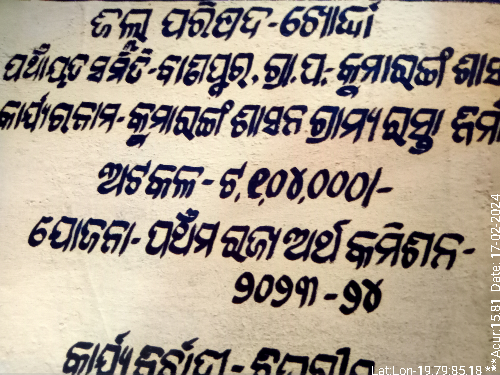 ଜିଲ୍ଲା ପରିଷଦ-ଖୋର୍ଦ୍ଧା
ପଞ୍ଚାୟତ ସମିତି-ବାଣପୁର, ଗ୍ରା.ପ.- କୁମାରଙ୍ଗ ଶାସ
କାର୍ଯ୍ୟରନାମ-କୁମାରଙ୍ଗ ଶାସନ ଗ୍ରାମ୍ୟ ରାସ୍ତା ନିର୍ମା
ଅଟକଳ-ଟ.୧,୦୪,୦୦୦/-
ଯୋଜନା-ପଞ୍ଚମ ରାଜ୍ୟ ଅର୍ଥ କମିଶନ-
୨୦୨୩-୨୪
କାର୍ଯ୍ୟ ନିର୍ବାହୀ-
Lat Lon-19.79:85.18 ** Acur:15.81, Date: 17-02-2024